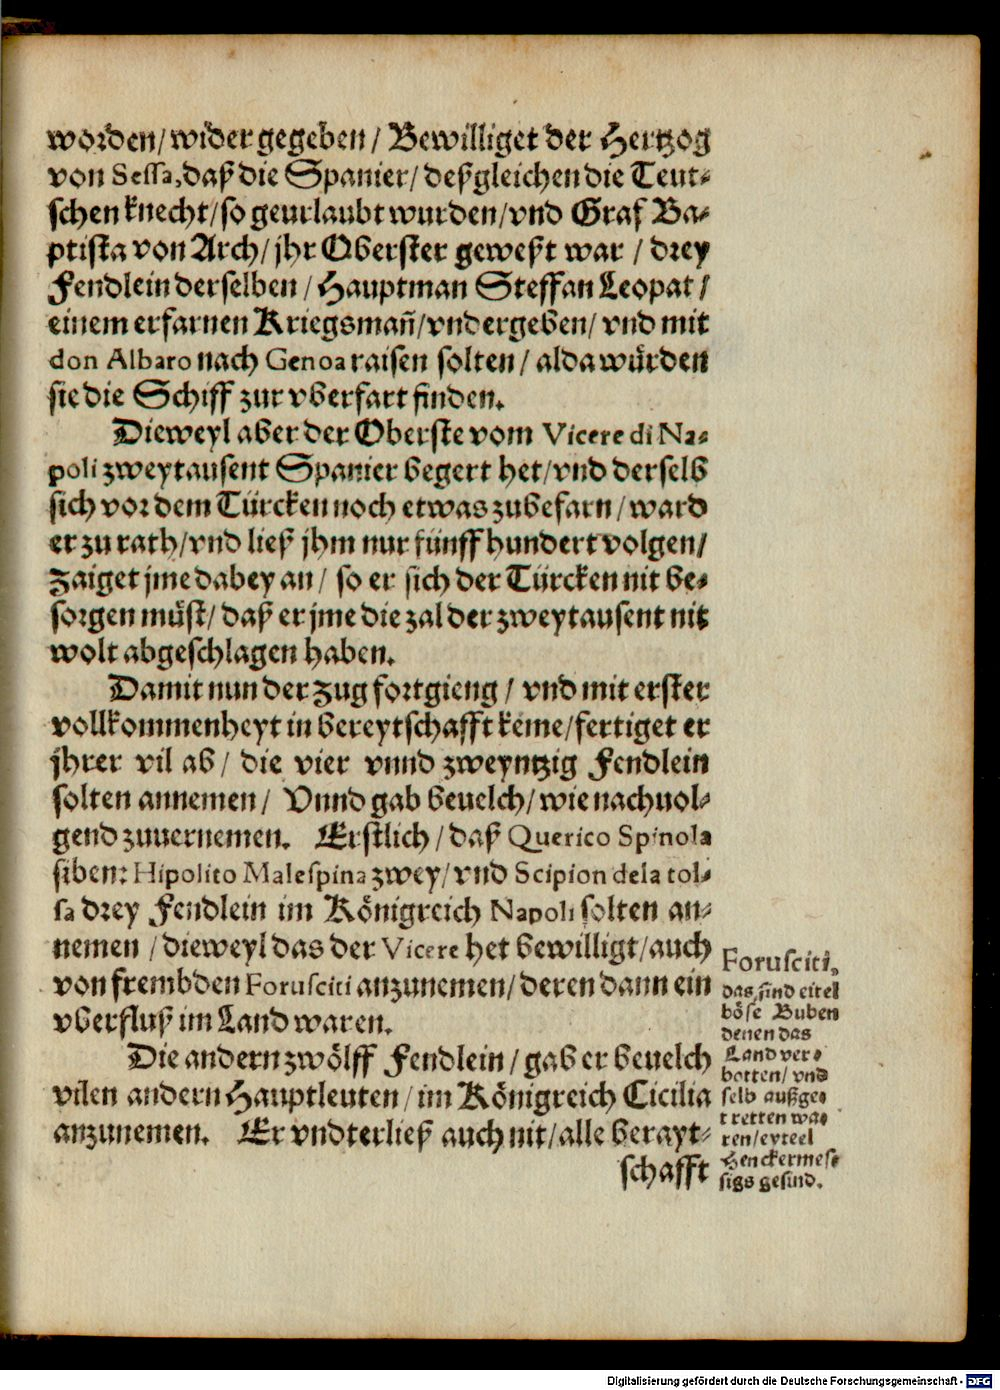 worden/ wider gegeben/ Bewilliget der Hertzog
von Sessa, daß die Spanier/ deßgleichen die Teut-
schen knecht/ so geurlaubt wurden/ vnd Graf Ba-
ptista von Arch/ jhr Oberster geweßt war / drey
Fendlein derselben / Hauptman Steffan Leopat /
einem erfarnen Kriegsmañ/ vndergeben/ vnd mit
don Albaro nach Genoa raisen solten / alda wůrden
sie die Schiff zur vberfart finden.
Dieweyl aber der Oberste vom Vicere di Na-
poli zweytausent Spanier begert het/ vnd derselb
sich vor dem Türcken noch etwas zubefarn / ward
er zu rath/ vnd ließ jhm nur fünff hundert volgen/
Zaiget jme dabey an / so er sich der Türcken nit be-
sorgen můst/ daß er jme die zal der zweytausent nit
wolt abgeschlagen haben.
Damit nun der Zug fortgieng / vnd mit erster
vollkommenheyt in bereytschafft keme/ fertiget er
jhrer vil ab / die vier vnnd zweyntzig Fendlein
solten annemen / Vnnd gab beuelch/ wie nachuol-
gend zuuernemen. Erstlich / daß Querico Spinola
siben: Hipolito Malespina zwey/ vnd Scipion dela tol-
sa drey Fendlein im Königreich Napoli solten an-
nemen / dieweyl das der Vicere het bewilligt/ auch
von frembden Forusciti anzunemen/ deren dann ein
vberfluß im Land waren.
Die andern zwölff Fendlein / gab er beuelch
vilen andern Hauptleuten / im Königreich Cicilia
anzunemen. Er vndterließ auch nit/ alle berayt-
schafft
Forusciti,
das sind eitel
böse Buben
denen das
Land ver-
botten/ vnd
selb außge-
tretten wa-
ren/ eyteel
Henckermes-
sigs gesind.
Digitalisierung gefördert durch die Deutsche Forschungsgemeinschaft - DFG